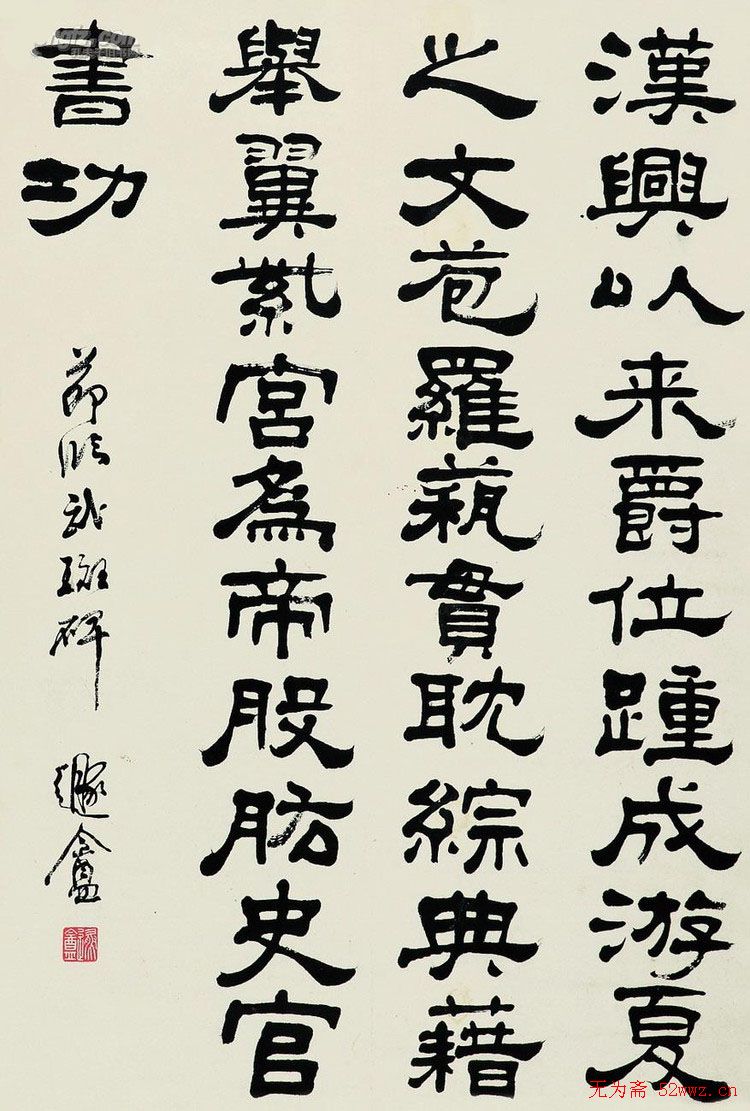 漢興以来爵位踵成游夏
之文苞羅蓺貫耽綜典藉
舉翼紫宮為帝股肱史官
書功
節臨武斑碑
邃盦
无为斋 52wwz.cn